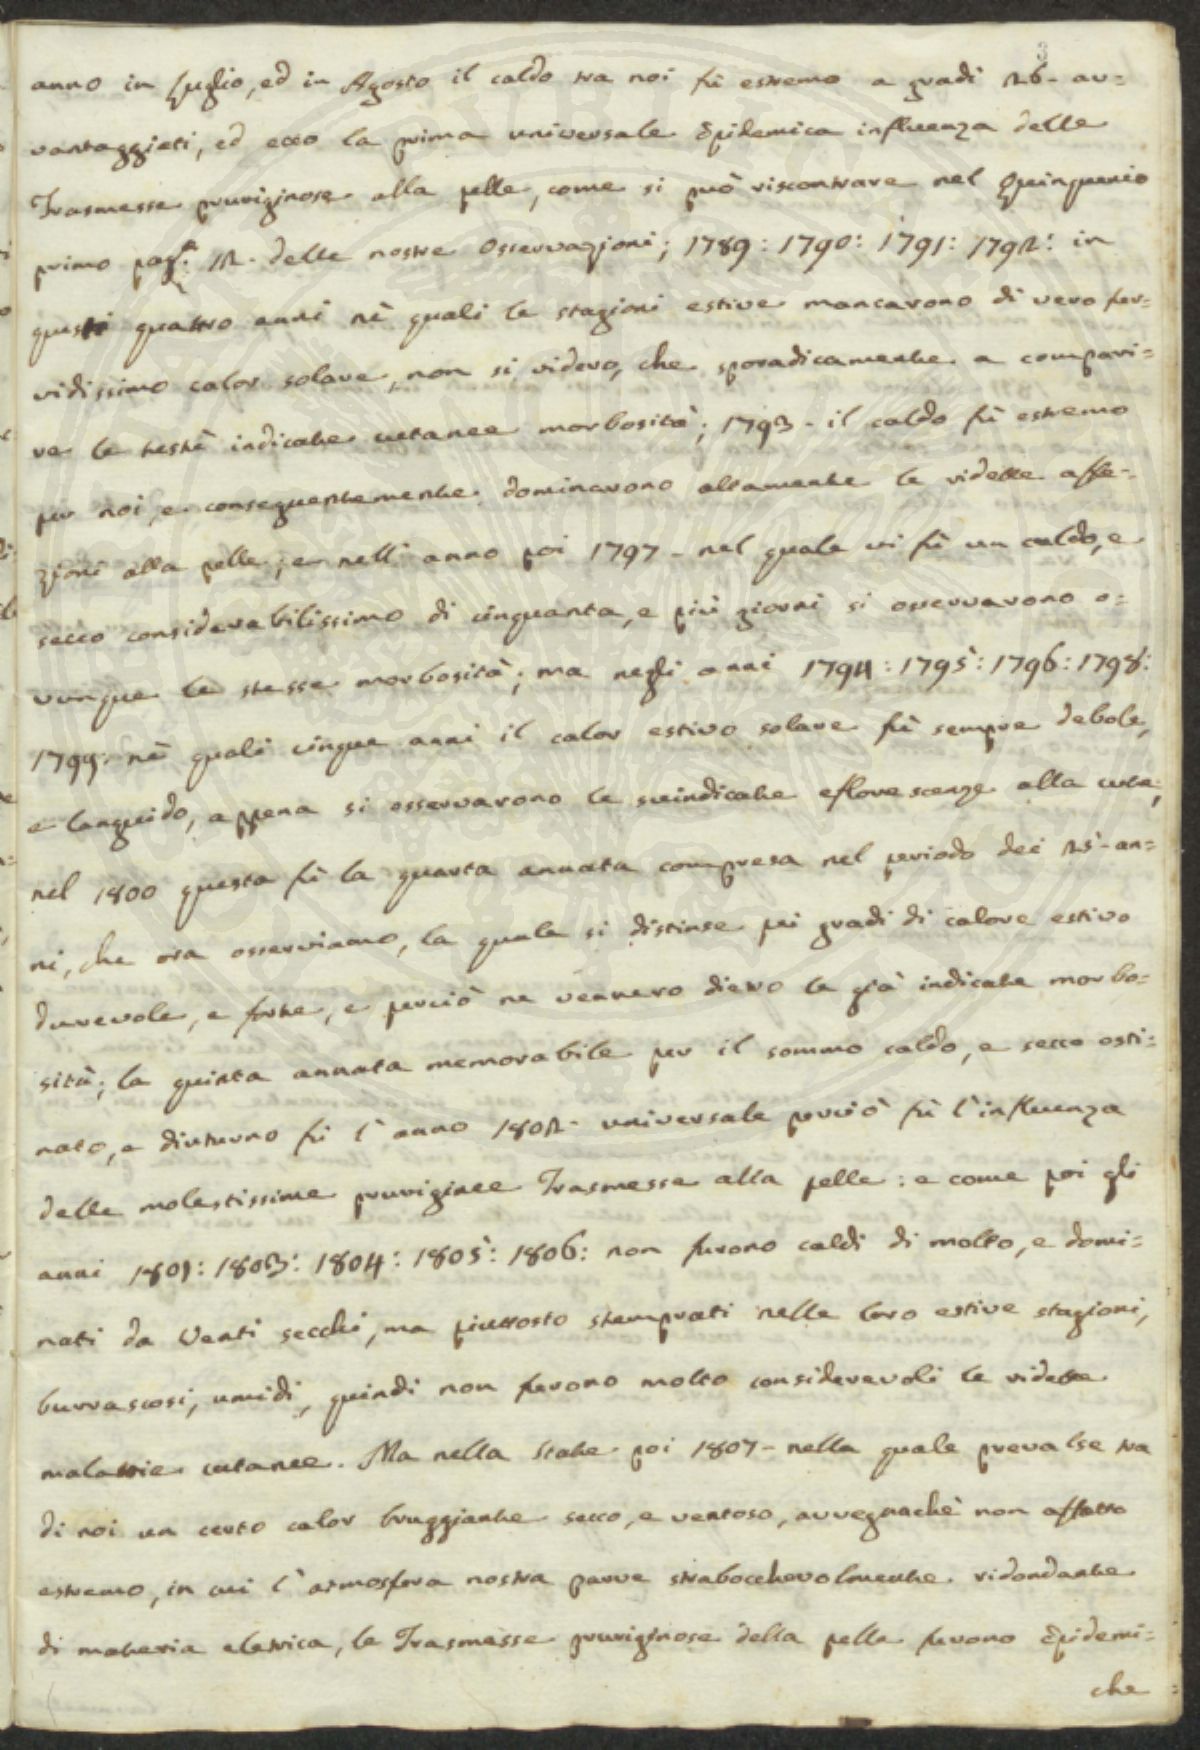 3
anno in Luglio, ed in Agosto il caldo tra noi fù estremo a gradi 26- av=
vantaggiati, ed ecco la prima universale Epidemica influenza delle
Trasmesse pruriginose alla pelle, come si può riscontrare nel Quinquenio
primo pag.ª 12. delle nostre Osservazioni; 1789: 1790: 1791: 1792: in
questi quattro anni nè quali le stagioni estive mancarono di vero fer=
vidissimo calor solare, non si videro, che sporadicamente a compari=
re le testè indicate cutanee morbosità; 1793- il caldo fù estremo
per noi, e conseguentemente dominarono altamente le ridette affe=
zioni alla pelle; e nell' anno poi 1797- nel quale vi fù un caldo, e
secco considerabilissimo di cinquanta, e più giorni si osservarono o=
vunque le stesse morbosità; ma negli anni 1794: 1795: 1796: 1798:
1799: nè quali cinque anni il calor estivo solare fù sempre debole,
e languido, appena si osservarono le suindicate eflorescenze alla cute;
nel 1800 questa fù la quarta annata compresa nel periodo dei 25- an=
ni, che ora osserviamo, la quale si distinse pei gradi di calore estivo
durevole, e forte, e perciò ne vennero dietro le già indicate morbo=
sità; la quinta annata memorabile per il sommo caldo, e secco osti=
nato, e diuturno fù l'anno 1802- universale perciò fù l'influenza
delle molestissime pruriginee Trasmesse alla pelle: e come poi gli
anni 1801: 1803: 1804: 1805: 1806: non furono caldi di molto, e domi=
nati da Venti secchi, ma piuttosto stemprati nelle loro estive stagioni,
burrascosi, umidi, quindi non furono molto considerevoli le ridette
malattie cutanee. Ma nella State poi 1807- nella quale prevalse tra
di noi un certo calor bruggiante secco, e ventoso, avvegnachè non affatto
estremo, in cui l'atmosfera nostra parve strabocchevolmente ridondante
di materia eletrica, le Trasmesse pruriginose della pelle furono Epidemi=
che